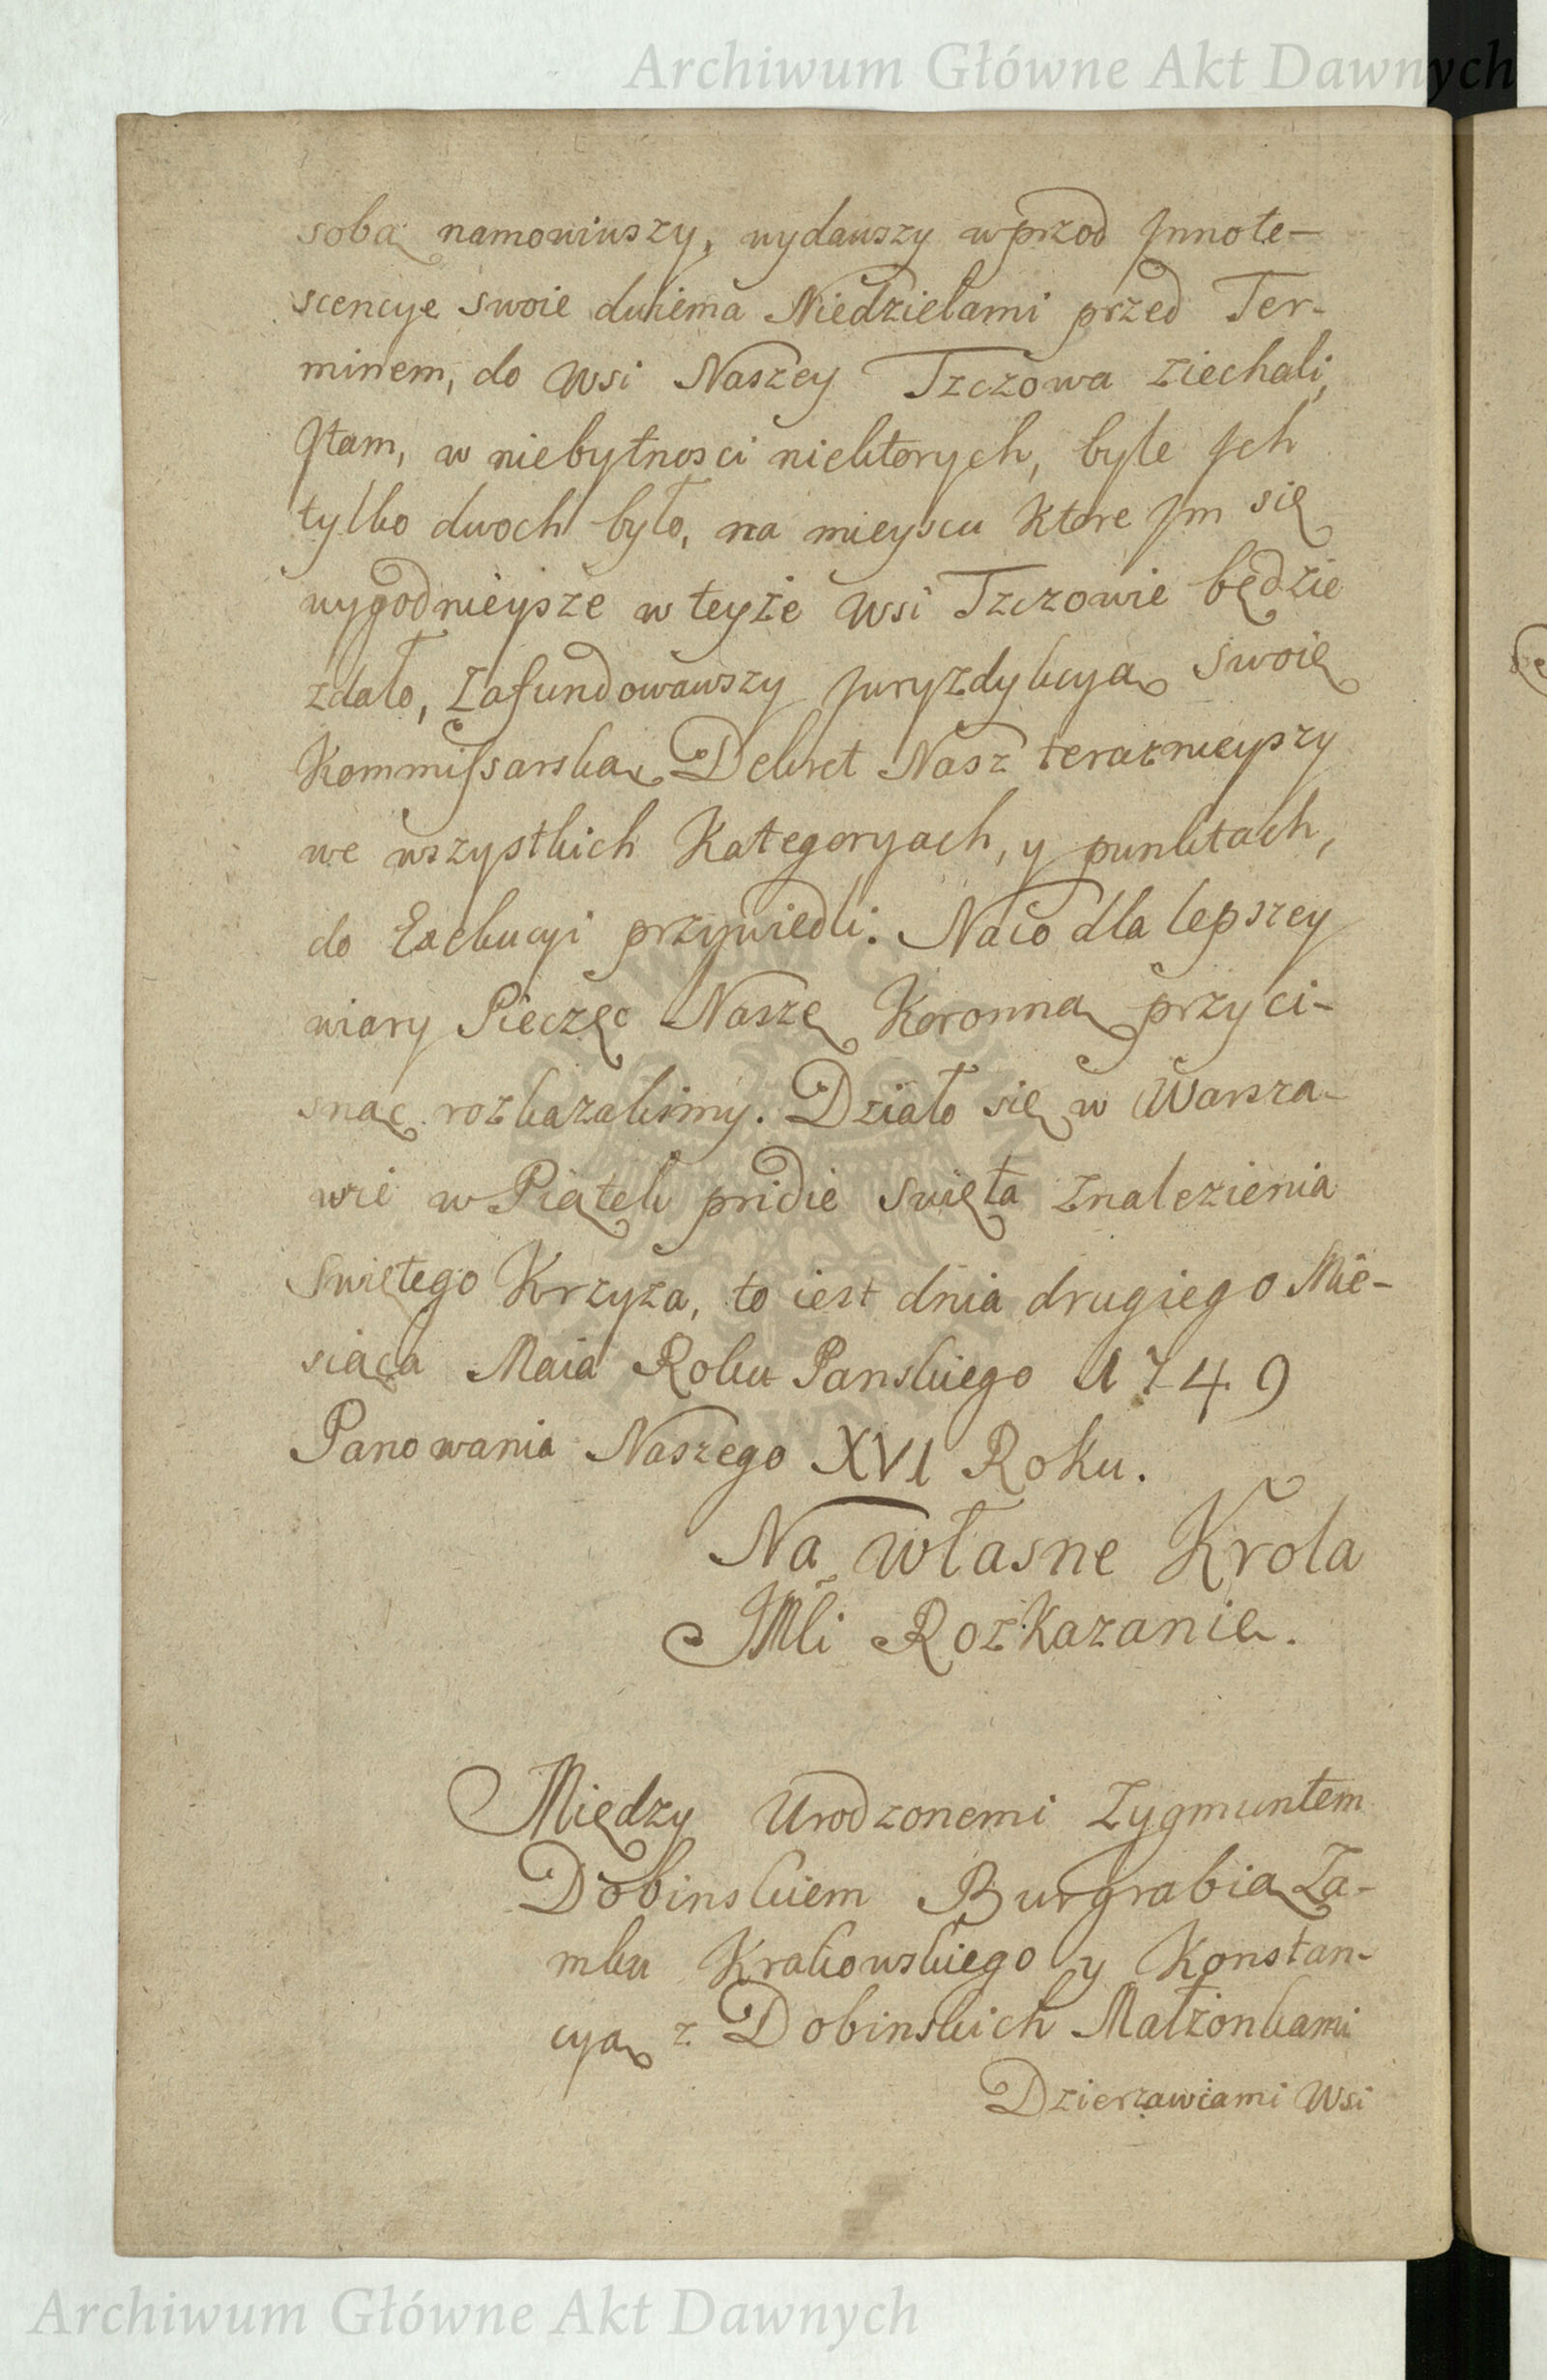 Archiwum Główne Akt Dawnych
sobą namowiwszy, wydawszy wprzod Jnnote-
scencye swoie dwiema Niedzielami przed Ter-
minem, do Wsi Naszey Tzczowa ziechali,
Jtam, w niebytnosci niektorych, byle Jch
tylko dwoch było, na mieyscu ktore Jm się
wygodnieysze w teyże Wsi Tzczowie będzie
zdało, zafundowawszy Juryzdykcyą swoię
Kommissarską Dekret Nasz teraznieyszy
we wszystkich Kategoryach, y punktach,
do Exekucyi przywiedli. Naco dla lepszey
wiary Pieczęc Naszę Koronną przyci-
snąc rozkazalismy. Działo się w Warsza-
wie w Piątek pridie Swięta Znalezienia
Swiętego Krzyza, to iest dnia drugiego Mie-
siąca Maia Roku Panskiego 1749
Panowania Naszego XVI Roku.
Na własne Krola
JMci Rozkazanie.
Między Urodzonemi Zygmuntem
Dobinskiem Burgrabią Za-
mku Krakowskiego y Konstan-
cyą z Dobinskich Małżonkami
Dzierzawcami Wsi
Archiwum Główne Akt Dawnych